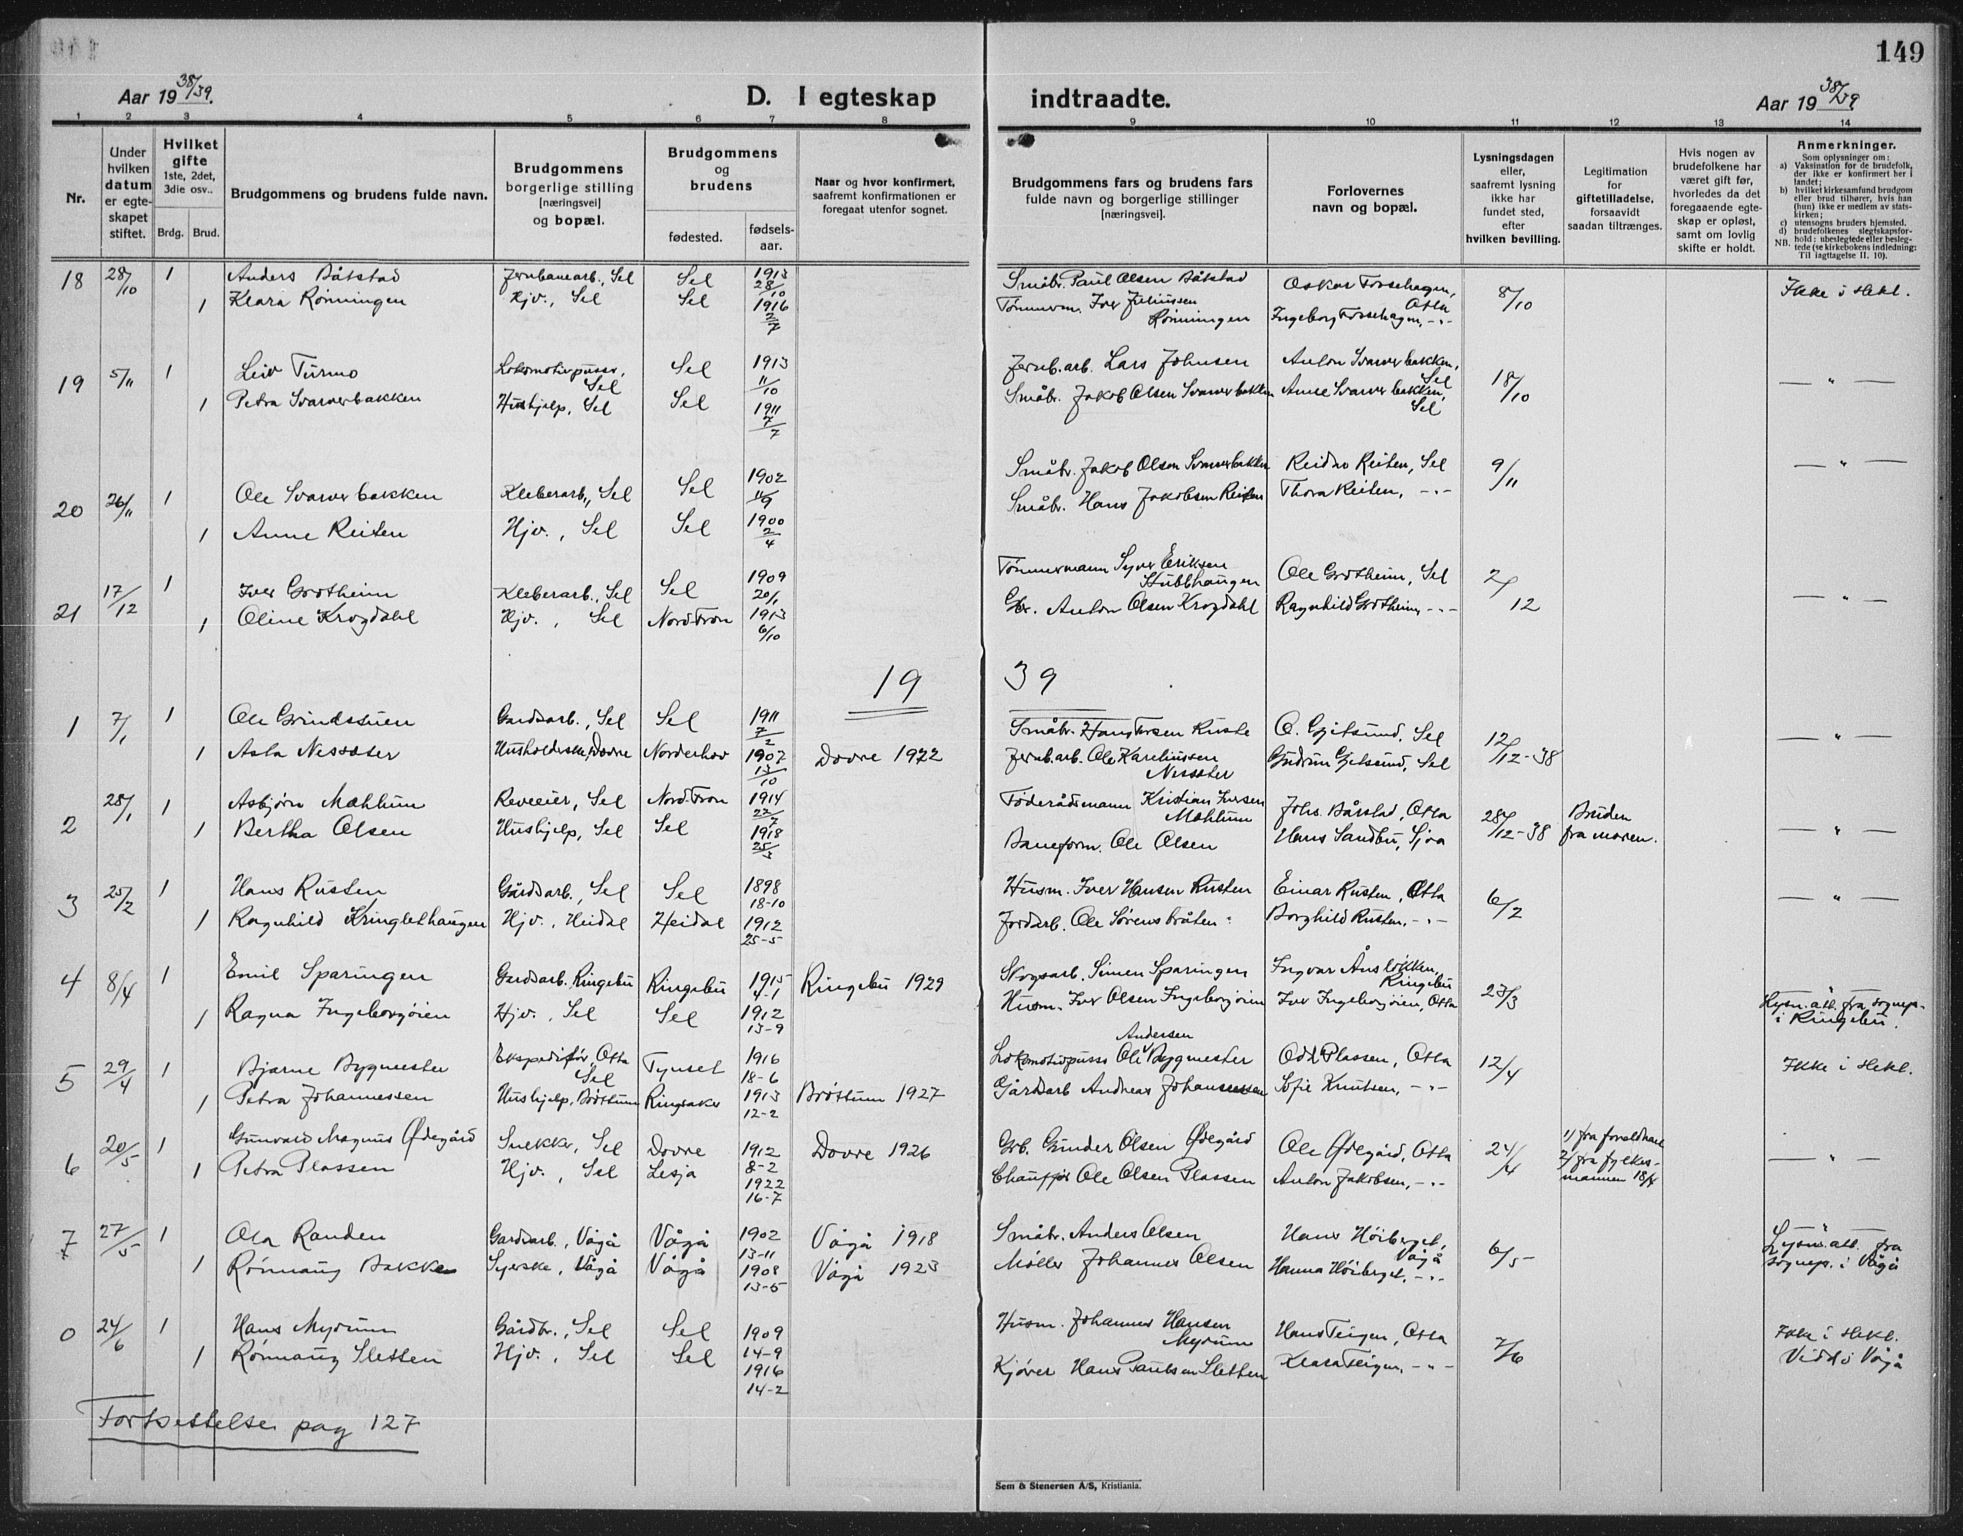 149
Aar 19 38/39.
D. I egteskap
indtraadte.
Aar 19 38/39
1 2 3 4 5 6 7 8 9 10 11 12 13 14
Nr.
Under hvilken datum er egteskapet stiftet.
Hvilket gifte 1ste, 2det, 3die osv..
Brdg. Brud.
Brudgommens og brudens fulde navn.
Brudgommens borgerlige stilling [næringsvei] og bopæl.
Brudgommens og brudens
fødested. fødselsaar.
Naar og hvor konfirmert, saafremt konfirmationen er foregaat utenfor sognet.
Brudgommens fars og brudens fars fulde navn og borgerlige stillinger [næringsvei].
Forlovernes navn og bopæl.
Lysningsdagen eller, saafremt lysning ikke har fundet sted, efter hvilken bevilling.
Legitimation for giftetilladelse, forsaavidt saadan tiltrænges.
Hvis nogen av brudefolkene har været gift før, hvorledes da det foregaaende egteskap er opløst, samt om lovlig skifte er holdt.
Anmerkninger.
Som oplysninger om:
a) Vaksination for de brudefolk, der ikke er konfirmert her i landet;
b) hvilket kirkesamfund brudgom eller brud tilhører, hvis han (hun) ikke er medlem av statskirken;
c) utensogns bruders hjemsted.
d) brudefolkenes slegtskapsforhold: ubeslegtede eller beslegtede (se kirkebokens indledning:
NB. Til iagttagelse II. 10).
18 28/10 1 Anders Båtstad Jernbanearb., Sel Sel 1913 28/10 Småbr. Paul Olsen Båtstad Oskar Fossehagen, Otta 8/10 Ikke i slekt.
1 Klara Rønningen Hjv., Sel Sel 1916 Tømmerm. Iver Juliussen Rønningen Ingeborg Fossehagen, -"-
19 5/11 1 Leiv Turmo Lokomotivpuss., Sel Sel 1913 11/10 Jernb.arb. Lars Johnsen Anton Svarverbakken, Sel 18/10 — " —
1 Petra Svarverbakken Hushjelp, Sel Sel 1911 7/7 Småbr. Jakob Olsen Svarverbakken Anne Svarverbakken, Sel
20 26/11 1 Ole Svarverbakken Kleberarb., Sel Sel 1902 11/9 Småbr. Jakob Olsen Svarverbakken Reidar Reiten, Sel 9/11 — " —
1 Anne Reiten Hjv., Sel Sel 1900 2/4 Småbr. Hans Jakobsen Reiten Thora Reiten, -"-
21 17/12 1 Iver Grotheim Kleberarb., Sel Sel 1909 20/1 Tømmermann Syver Eriksen Stubbhaugen Ole Grotheim, Sel 2/12 — " —
1 Oline Krogdahl Hjv., Sel Nord-Fron 1913 6/10 Gbr. Anton Olsen Krogdahl Ragnhild Grotheim, -"-
19 39
1 7/1 1 Ole Grindstuen Gardsarb., Sel Sel 1911 7/2 Småbr. Hans Iversen Ruste O. Gjetsund, Sel 12/12-38 — " —
1 Asta Nessæter Husholderske, Dovre Norderhov 1907 13/10 Dovre 1922 Jernb.arb. Ole Kareliussen Nessæter Gudrun Gjetsund, Sel
2 28/1 1 Asbjørn Mæhlum Reveeier, Sel Nord-Fron 1914 22/7 Føderådsmann Kristian Iversen Mæhlum Johs. Bårstad, Otta 28/12-38 Bruden fra moren. — " —
1 Bertha Olsen Hushjelp, Sel Sel 1918 25/3 Baneform. Ole Olsen Hans Sandbu, Sjoa
3 25/2 1 Hans Rusten Gårdsarb., Sel Sel 1898 18-10 Husm. Iver Hansen Rusten Einar Rusten, Otta 6/2 — " —
1 Ragnhild Kringlethaugen Hjv., Heidal Heidal 1912 25-5 Jordarb. Ole Sørensbråten Borghild Rusten, -"-
4 8/4 1 Emil Sparingen Gardsarb. Ringebu Ringebu 1915 4-1 Ringebu 1929 Skogsarb. Simen Sparingen Ingvar Ånsløkken, Ringebu 23/3 Lysn.att. fra sognep. i Ringebu.
1 Ragna Ingeborgøien Hjv., Sel Sel 1912 13-9 Husm. Iver Olsen Ingeborgøien Iver Ingeborgøien, Otta
5 29/4 1 Bjarne Bygmester Ekspeditør, Otta Sel Tynset 1916 18-6 Lokomotivpuss Ole Andersen Bygmester Odd Plassen, Otta 12/4 Ikke i slekt.
1 Petra Johannessen Hushjelp, Brøttum Ringsaker 1913 12-2 Brøttum 1927 Gårdsarb Andreas Johannessen Sofie Knutsen, -"-
6 20/5 1 Gunvald Magnus Ødegård Snekker, Sel Dovre 1912 8-2 Dovre 1926 Grb. Gunder Olsen Ødegård Ole Ødegård, Otta 24/4 1/ fra foreldrene 2/ fra fylkesmannen 18/4 — " —
1 Petra Plassen Hjv., Sel Lesja 1922 16-7 Chauffør Ole Olsen Plassen Anton Jakobsen, -"-
7 27/5 1 Ola Randen Gardsarb., Vågå Vågå 1902 13-11 Vågå 1918 Småbr. Anders Olsen Hans Høiberget, Vågå 6/5 Lysn.att. fra sognepr. i Vågå
1 Rønnaug Bakken Syerske, Vågå Vågå 1908 13-5 Vågå 1923 Møller Johannes Olsen Hanna Høiberget, -"-
0 24/6 1 Hans Myrum Gårdbr., Sel Sel 1909 14-9 Husm. Johannes Hansen Myrum Hans Teigen, Otta 7/6 Ikke i slekt. Vidd i Vågå
1 Rønnaug Sletten Hjv., Sel Sel 1916 14-2 Kjører Hans Paulsen Sletten Klara Teigen, -"-
Fortsettelse pag 127
Sem & Stenersen A/S, Kristiania.